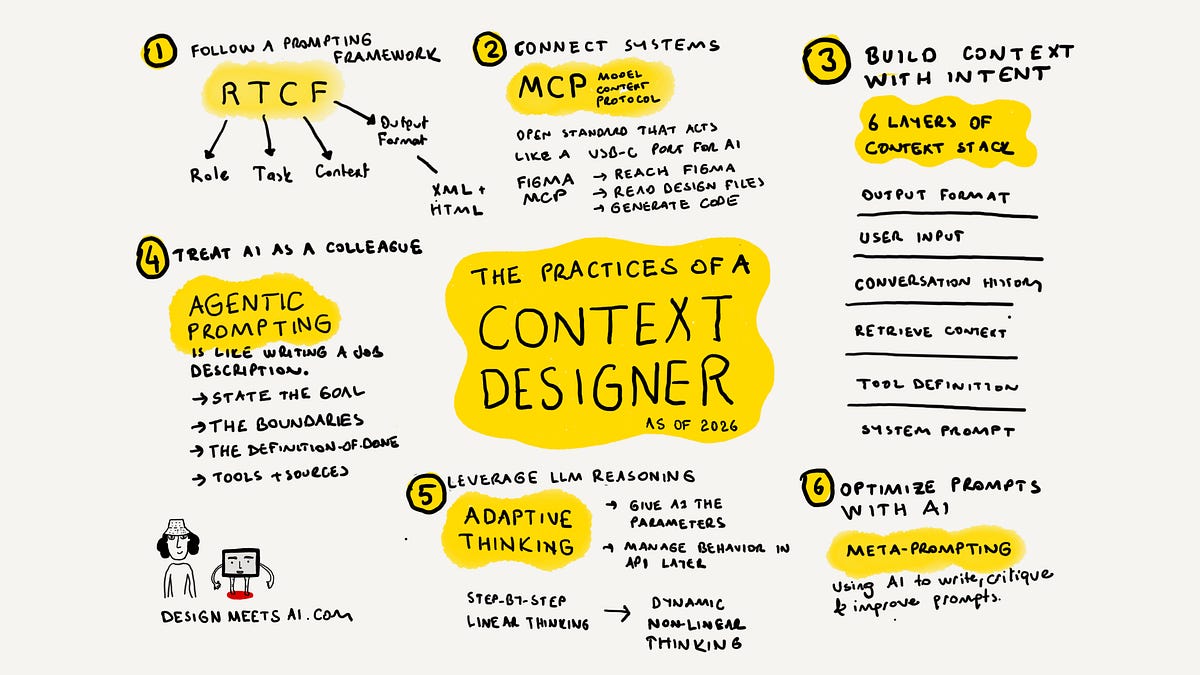 1
FOLLOW A PROMPTING
FRAMEWORK
RTCF
Role
Task
Context
Output
Format
XML +
HTML
2
CONNECT SYSTEMS
MCP
MODEL
CONTEXT
PROTOCOL
OPEN STANDARD THAT ACTS
LIKE A USB-C PORT FOR AI
FIGMA
MCP
→ REACH FIGMA
→ READ DESIGN FILES
→ GENERATE CODE
3
BUILD CONTEXT
WITH INTENT
6 LAYERS OF
CONTEXT STACK
OUTPUT FORMAT
USER INPUT
CONVERSATION HISTORY
RETRIEVE CONTEXT
TOOL DEFINITION
SYSTEM PROMPT
4
TREAT AI AS A COLLEAGUE
AGENTIC
PROMPTING
IS LIKE WRITING A JOB
DESCRIPTION.
→ STATE THE GOAL
→ THE BOUNDARIES
→ THE DEFINITION-OF-DONE
→ TOOLS + SOURCES
THE PRACTICES OF A
CONTEXT
DESIGNER
AS OF 2026
5
LEVERAGE LLM REASONING
ADAPTIVE
THINKING
→ GIVE AI THE
PARAMETERS
→ MANAGE BEHAVIOR IN
API LAYER
STEP-BY-STEP
LINEAR THINKING
→
DYNAMIC
NON-LINEAR
THINKING
6
OPTIMIZE PROMPTS
WITH AI
META-PROMPTING
Using AI to write, critique
& improve prompts.
DESIGN MEETS AI.COM